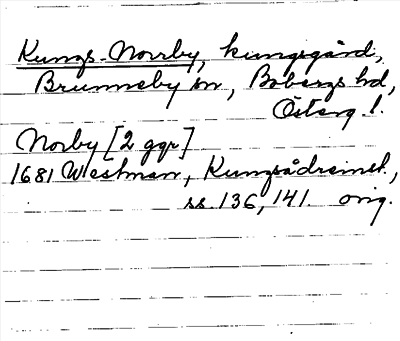 Kungs-Norrby, kungsgård,
Brunneby sn, Bobergs hd,
Österg l.
Norby [2 ggr]
1681 Westman, Kungsådreinst.,
ss. 136, 141. orig.